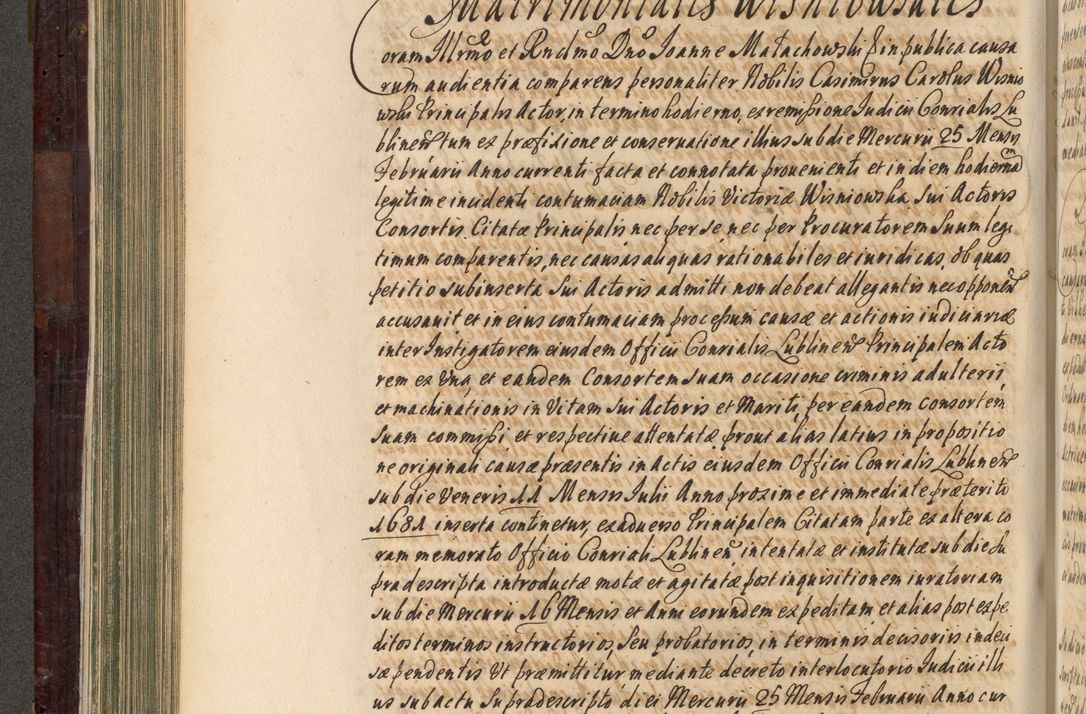 Matrimonialis Wisniowsciis
oram Illrmo et Rndmo Dno Ioanne Małachowski &c in publica causa
rum audientia comparens personaliter Nobilis Casimirus Carolus Wisnio
wski Principalis Actor, in termino hodierno, ex remissione Iudicii Consrialis Lu
blinen tum ex præfixione et conseruatione illius sub die Mercurii 25 Mensis
Februarii Anno currenti facta et connotata prouenienti et in diem hodiernam
legitime incidenti contumaciam Nobilis Victoriæ Wisniowska Sui Actoris
Consortis Citatæ Principalis nec per se, nec per Procuratorem Suum legi
timum comparentis, nec causas aliquas rationabiles et iuridicas, ob quas
petitio subinserta Sui Actoris admitti non debeat allegantis nec opponen
accusauit et in eius contumaciam processum causæ et actionis iudiciariæ
inter Instigatorem eiusdem Officii Consrialis Lublinen Principalem Acto
rem ex Vna, et eandem Consortem Suam occasione criminis adulterii,
et machinationis in Vitam Sui Actoris et Mariti, per eandem Consortem
Suam commissi, et respectiue attentatæ prout alias latius in propositio
ne originali causæ præsentis in Actis eiusdem Officii Consrialis Lublinen
sub die Veneris 11 Mensis Iulii Anno proxime et immediate præterito
1681 inserta continetur, ex aduerso Principalem Citatam parte ex altera co
ram memorato Officio Consriali Lublinen, intentatæ et institutæ sub die Su
pradescripta introductæ motæ et agitatæ post inquisitionem iuratoriam
sub die Mercurii 16 Mensis et Anni eorundem expeditam et alias post expe
ditos terminos instructorios, Seu probatorios, in terminis decisoriis indeci
sæ pendentis Vt præmittitur mediante decreto interlocutorio Iudicii illi
us sub actu Supradescripto diei Mercurii 25 Mensis Februarii Anno cur